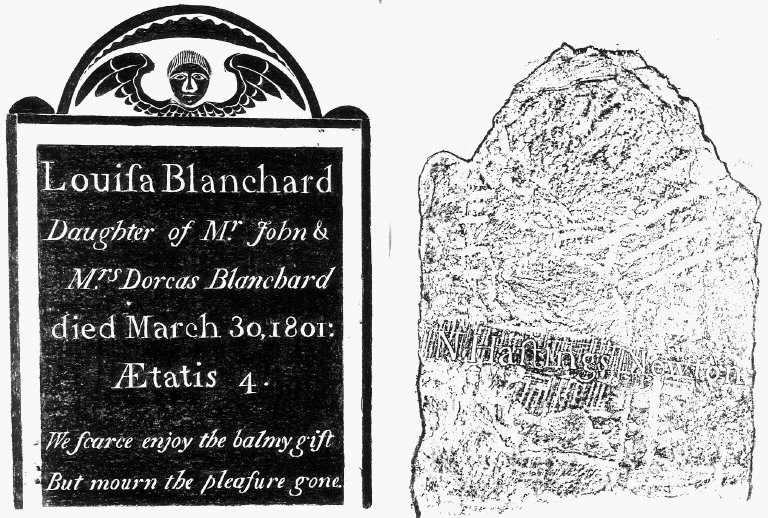 Louiſa Blanchard
Daughter of Mr. John &
Mrs Dorcas Blanchard
died March 30, 1801:
Ætatis 4.
We ſcarce enjoy the balmy gift
But mourn the pleaſure gone.
N Hanings Newton